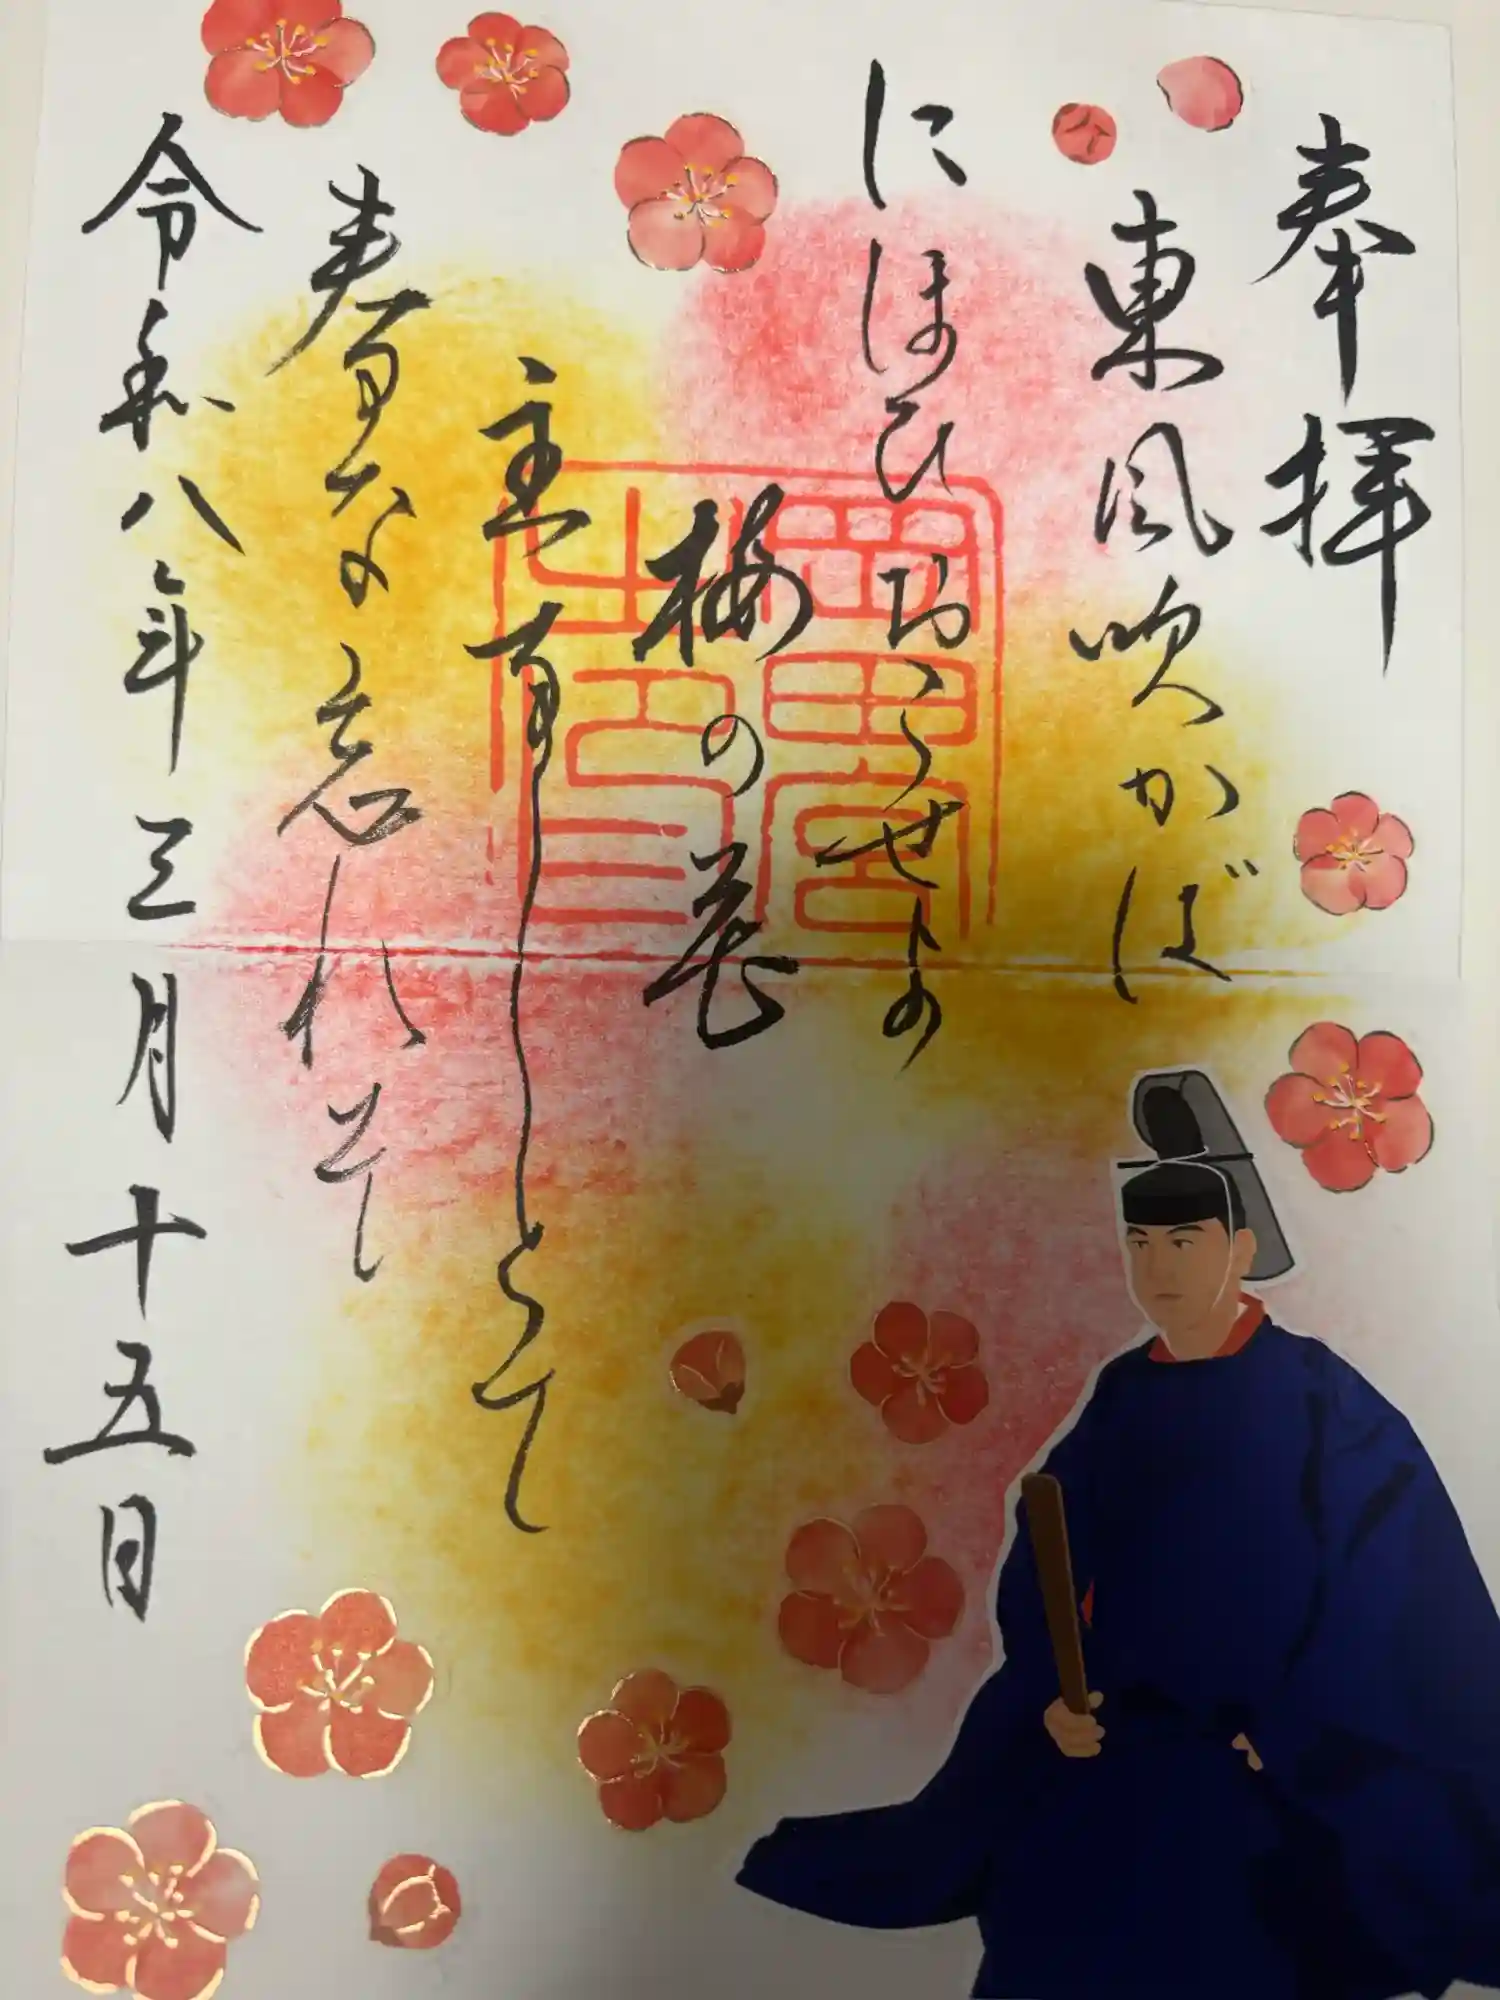 奉拝
東風吹かば
にほひおこせよ
梅の花
主有しとて
春な忘れそ
令和八年三月十五日